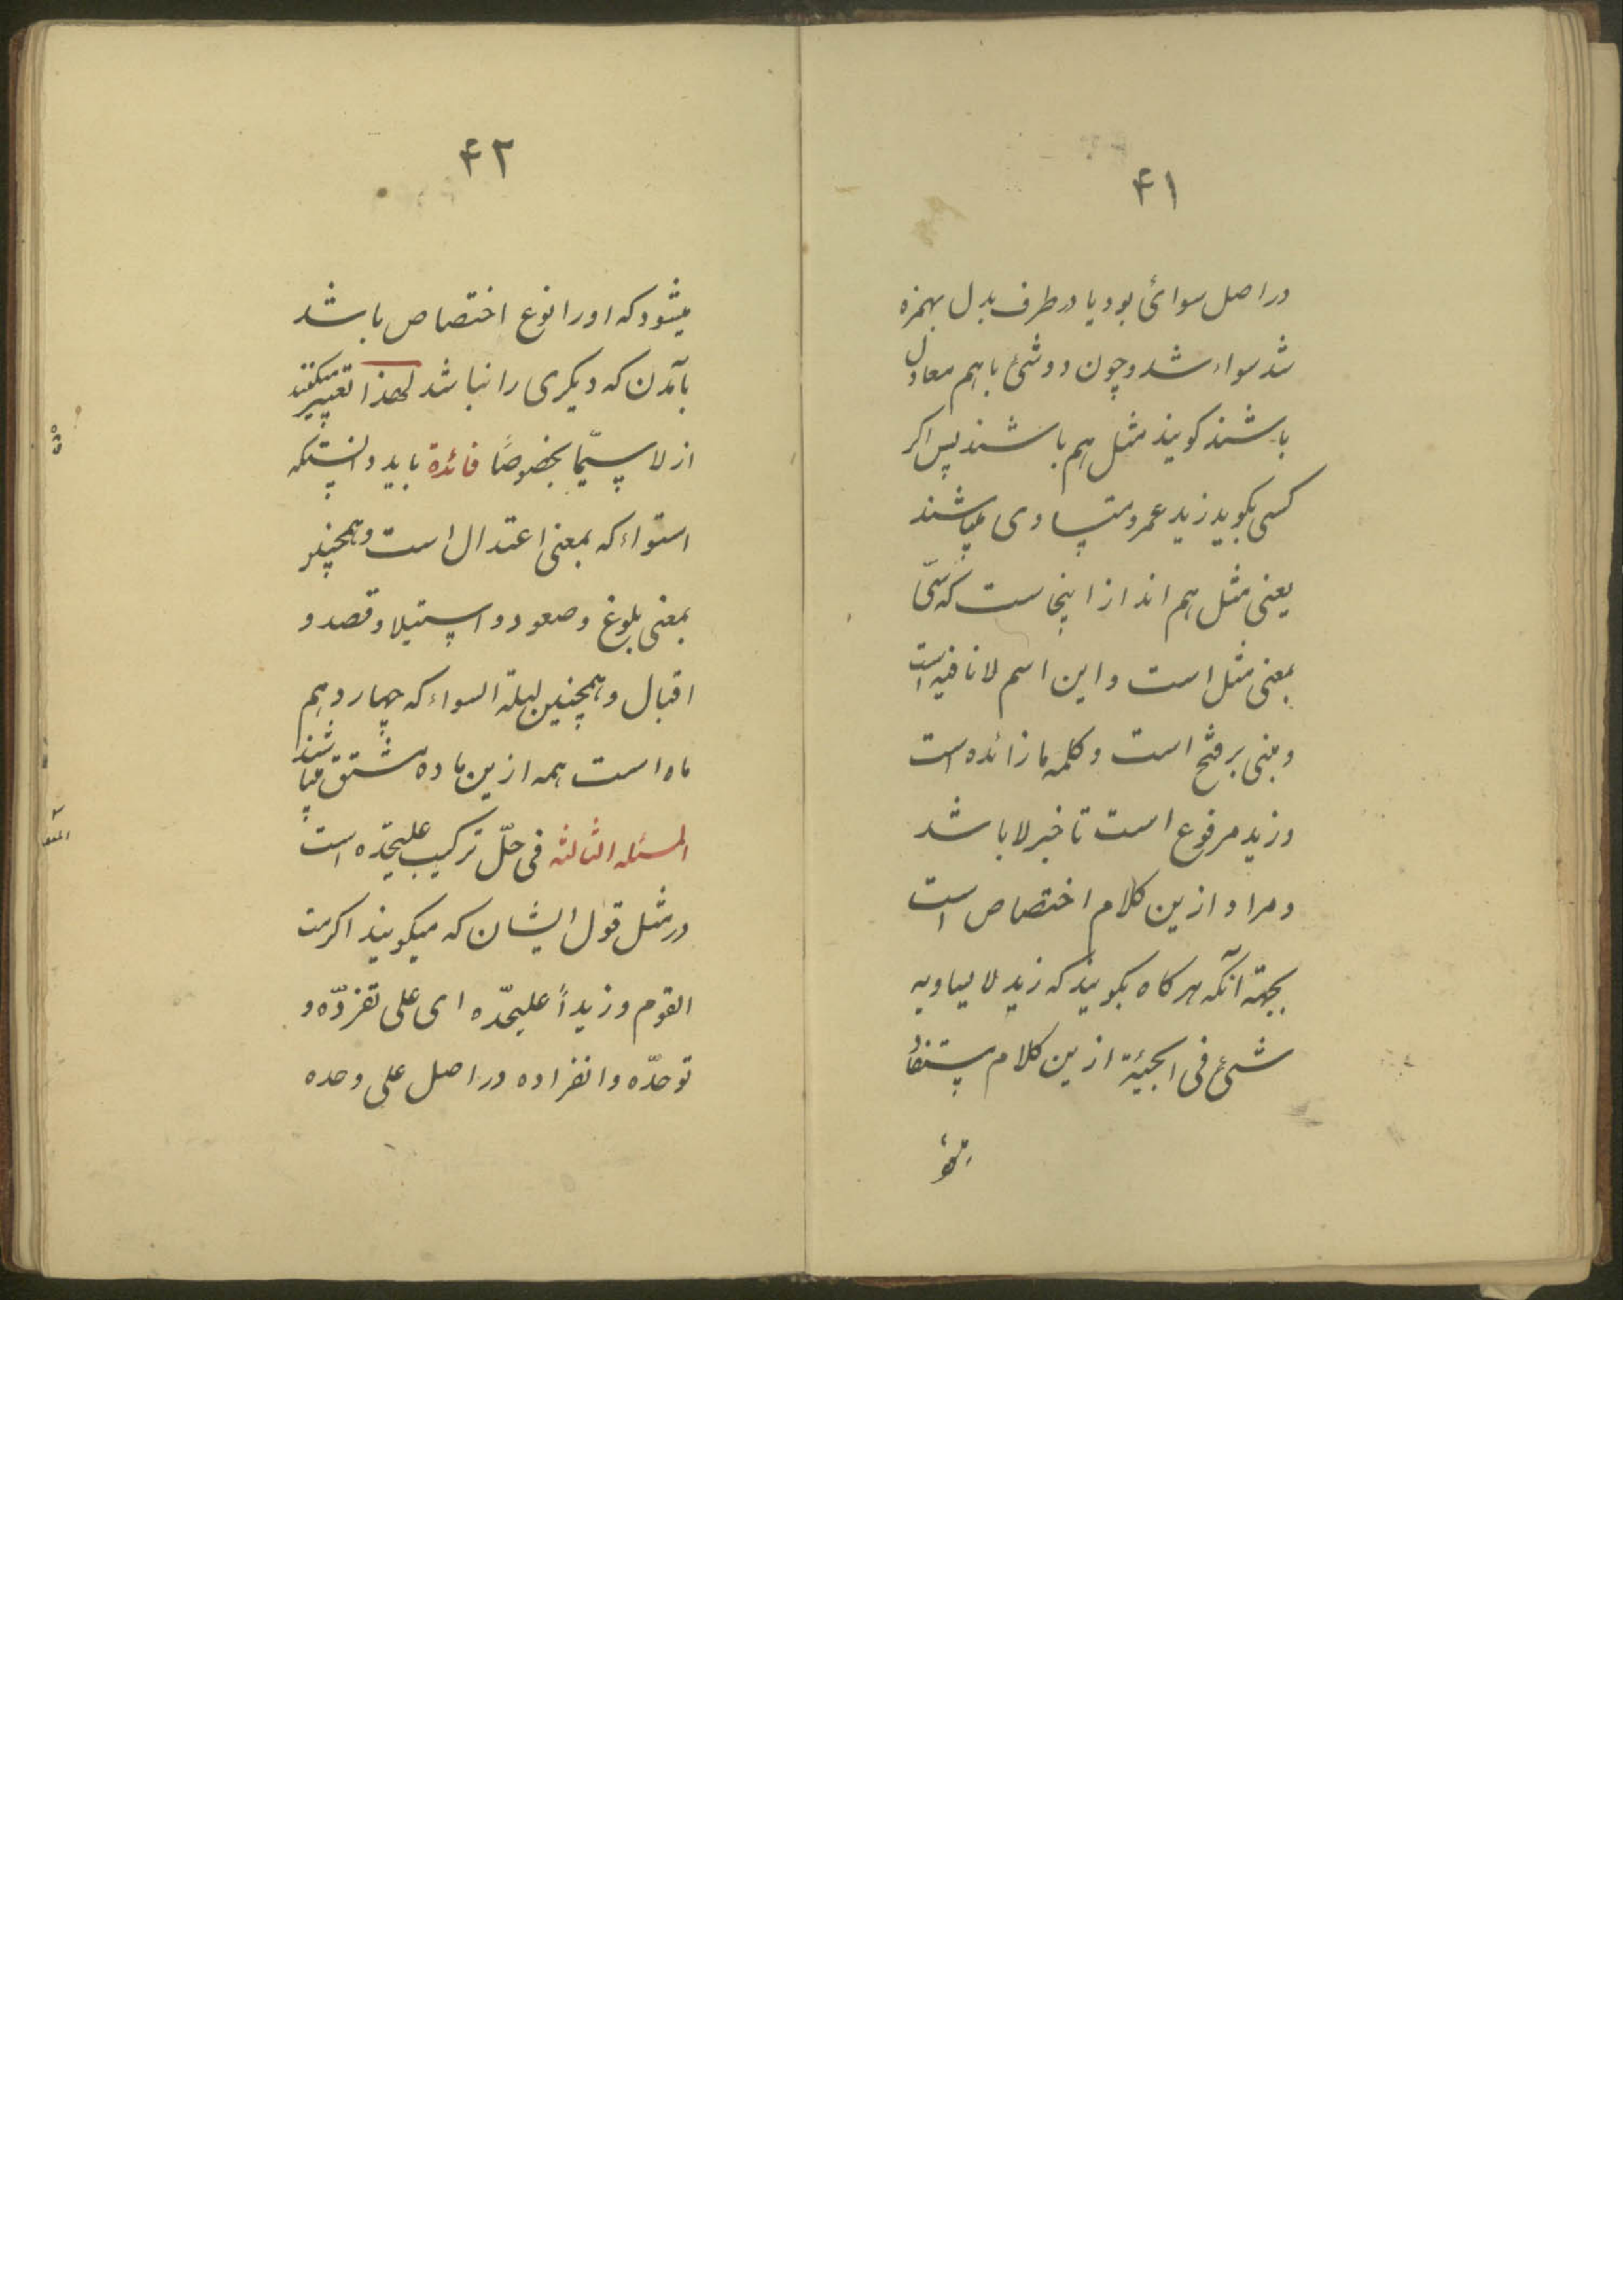 ۴۱
در اصل سوائ بود یا در طرف بدل بهمزه
شد سواء شد و چون دو شئ با هم معادل
باشند کویند مثل هم باشند پس اکر
کسی بکوید زید عمرو متساوی میباشند
یعنی مثل هم اند از اینجاست که سیّ
بمعنی مثل است و این اسم لا نافیه است
و مبنی بر فتح است و کلمه ما زائده است
و زید مرفوع است تا خبر لا باشد
و مراد ازین کلام اختصاص است
بجهته آنکه هر کاه بکویند که زید لا یساویه
شئ فی المجیئة ازین کلام مستفاد
۴۲
میشود که او را نوع اختصاص باشد
بآمدن که دیکری را نباشد لهذا تعبیر میکنند
از لا سیّما بخصوصًا فائدة باید دانستکه
استواء که بمعنی اعتدال است و همچنین
بمعنی بلوغ و صعود و استیلا و قصد و
اقبال و همچنین لیلة السواء که چهاردهم
ماه است همه ازین ماده مشتق میباشند
المسئله الثالثه فی حلّ ترکیب علیحدّه است
در مثل قول ایشان که میکویند اکرمت
القوم و زیداً علیحدّه ای علی تفرّده و
توحدّه و انفراده در اصل علی وحده